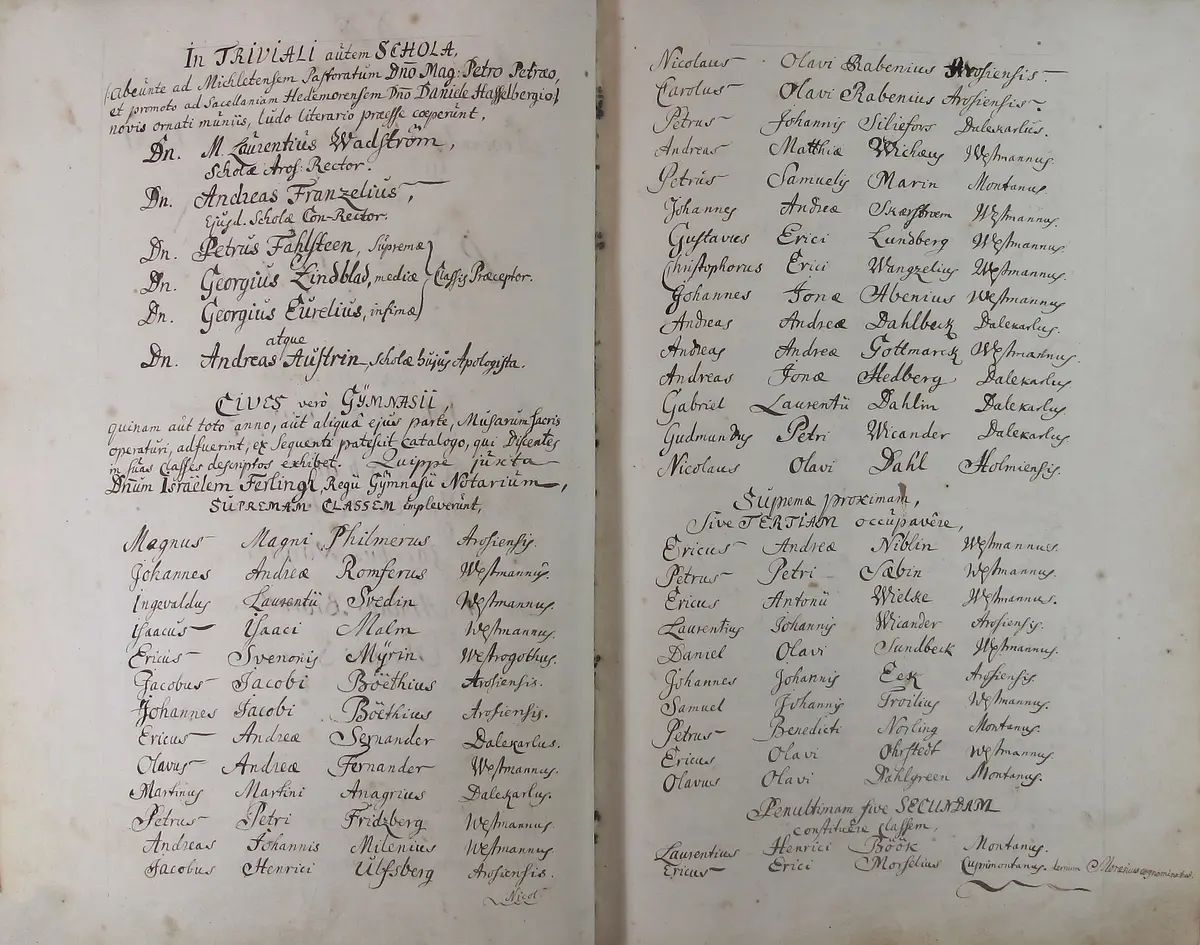 In TRIVIALI autem SCHOLA,
(abeunte ad Michletensem Pastoratum Dno Mag: Petro Petræo,
et promoto ad Sacellaniam Hedemorensem Dno Daniele Hasselbergio)
novis ornati muniis, ludo literario præesse cœperunt,
Dn. M. Laurentius Wadström,
Scholæ Aros: Rector.
Dn. Andreas Franzelius,
Ejusd. Scholæ Con-Rector.
Dn. Petrus Fahlsteen, Supremæ
Dn. Georgius Lindblad, mediæ Classis Præceptor.
Dn. Georgius Eurelius, infimæ
atque
Dn. Andreas Austrin, Scholæ hujus Apologista.
CIVES verò GYMNASII,
quinam aut toto anno, aut aliquâ ejus parte, Musarum sacris
operaturi, adfuerint, ex sequenti patescit Catalogo, qui Discentes
in suas Classes descriptos exhibet. Quippe juxta
Dnum Israëlem Ferlingh, Regii Gymnasii Notarium,
SUPREMAM CLASSEM impleverunt,
Magnus Magni Philmerus Arosiensis.
Johannes Andreæ Romferus Westmannus.
Ingevaldus Laurentii Svedin Westmannus.
Isaacus Isaaci Malm Westmannus.
Ericus Svenonis Myrin Westrogothus.
Jacobus Jacobi Böëthius Arosiensis.
Johannes Jacobi Böëthius Arosiensis.
Ericus Andreæ Sernander Dalekarlus.
Olavus Andreæ Fernander Westmannus.
Martinus Martini Anagrius Dalekarlus.
Petrus Petri Fridzberg Westmannus.
Andreas Johannis Milenius Westmannus.
Jacobus Henrici Ulfsberg Arosiensis.
Nicol
Nicolaus Olavi Rabenius Arosiensis.
Carolus Olavi Rabenius Arosiensis.
Petrus Johannis Siliefors Dalekarlus.
Andreas Matthiæ Wichæus Westmannus.
Petrus Samuelis Marin Montanus.
Johannes Andreæ Skærstrœm Westmannus.
Gustavus Erici Lundberg Westmannus.
Christophorus Erici Wangzelius Westmannus.
Johannes Jonæ Abenius Westmannus.
Andreas Andreæ Dahlbeck Dalekarlus.
Andreas Andreæ Gottmarck Westmannus.
Andreas Jonæ Hedberg Dalekarlus
Gabriel Laurentii Dahlin Dalekarlus
Gudmundus Petri Wicander Dalekarlus
Nicolaus Olavi Dahl Holmiensis.
Supremæ proximam,
Sive TERTIAM occupavêre,
Ericus Andreæ Niblin Westmannus.
Petrus Petri Sæbin Westmannus.
Ericus Antonii Wielke Westmannus.
Laurentius Johannis Wicander Arosiensis.
Daniel Olavi Sundbeck Westmannus.
Johannes Johannis Eek Arosiensis
Samuel Johannis Troilius Westmannus.
Petrus Benedicti Norling Montanus.
Ericus Olavi Ohrstedt Westmannus.
Olavus Olavi Dahlgreen Montanus.
Penultimam sive SECUNDAM
constituêre classem,
Laurentius Henrici Böök Montanus.
Ericus Erici Morselius Cuprimontanus. Moræus cognominatus.